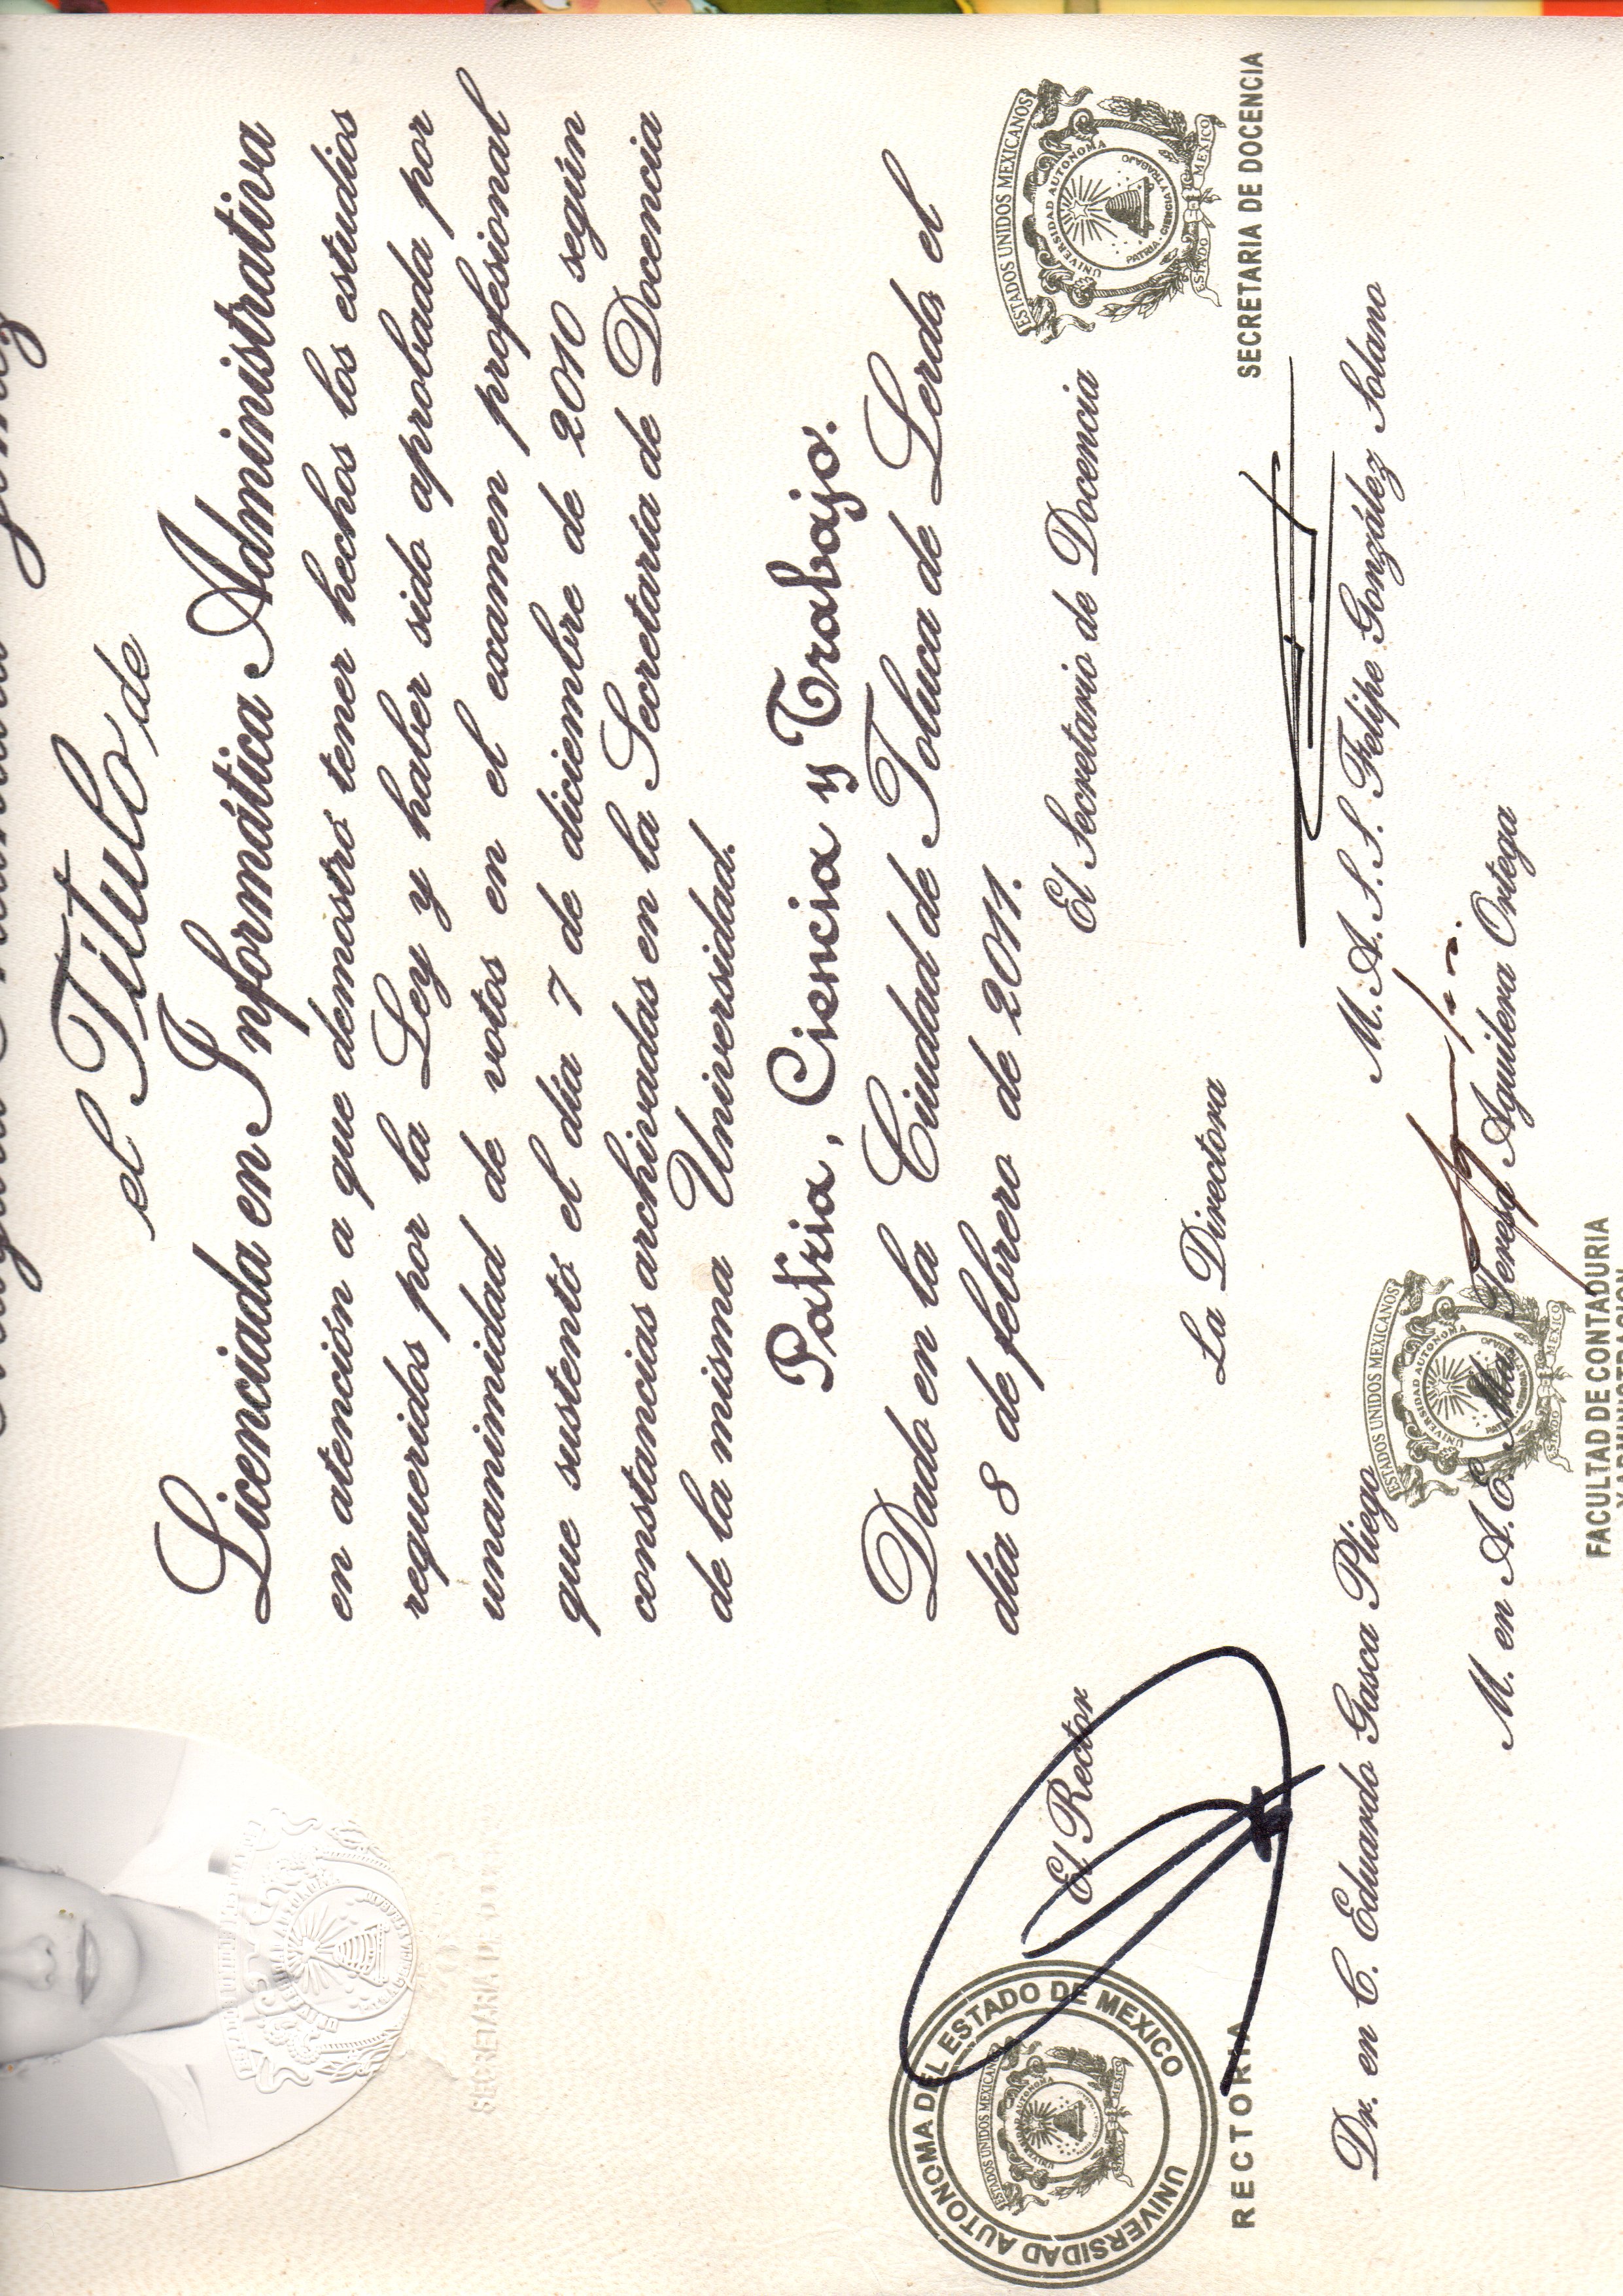 el Título de
Licenciada en Informática Administrativa
en atención a que demostró tener hechos los estudios
requeridos por la Ley y haber sido aprobada por
unanimidad de votos en el examen profesional
que sustentó el día 7 de diciembre de 2010 según
constancias archivadas en la Secretaría de Docencia
de la misma Universidad.
Patria, Ciencia y Trabajo.
Dado en la Ciudad de Toluca de Lerdo, el
día 8 de febrero de 2011.
El Rector
El Secretario de Docencia
ESTADOS UNIDOS MEXICANOS
UNIVERSIDAD AUTONOMA
PATRIA, CIENCIA Y TRABAJO
ESTADO MEXICO
SECRETARIA DE DOCENCIA
La Directora
UNIVERSIDAD AUTONOMA DEL ESTADO DE MEXICO
ESTADOS UNIDOS MEXICANOS
RECTORIA
Dr. en C. Eduardo Gasca Pliego
M. A. S. S. Felipe González Solano
ESTADOS UNIDOS MEXICANOS
UNIVERSIDAD AUTONOMA
ESTADO MEXICO
M. en A. E. Teresa Aguilera Ortega
FACULTAD DE CONTADURIA
Y ADMINISTRACION
SECRETARIA DE